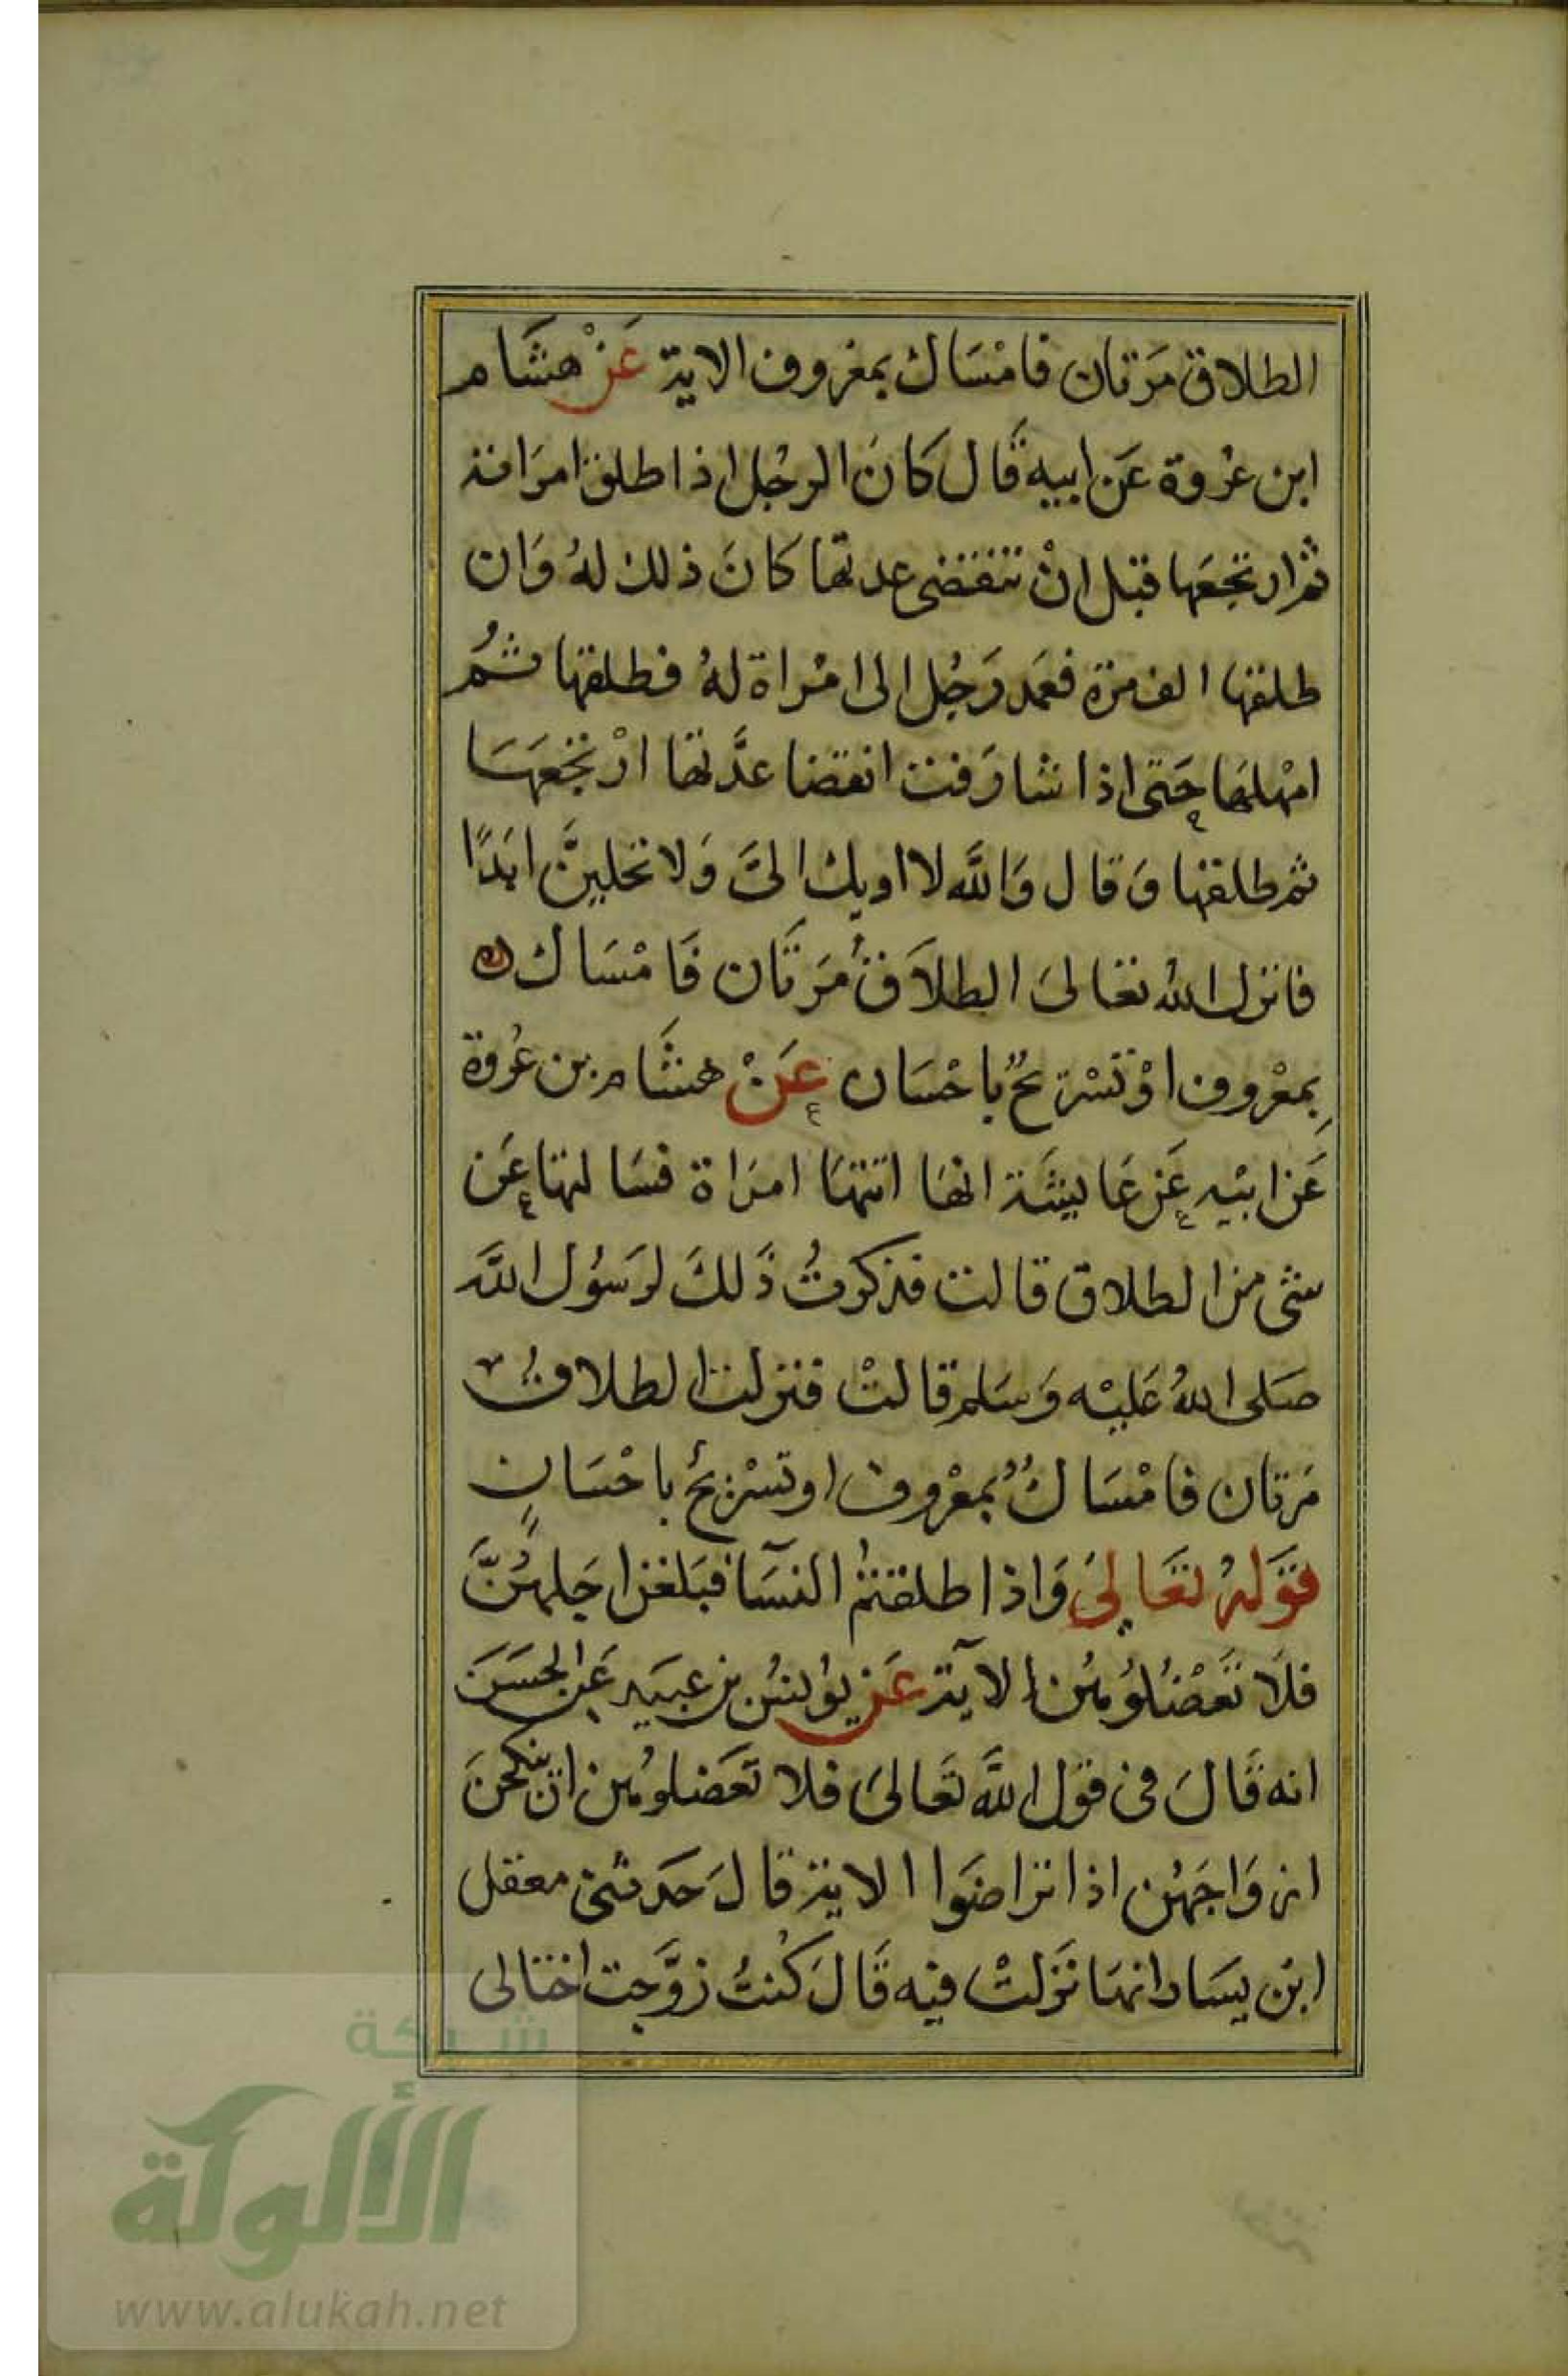 الطلاق مَرتان فامْسَاك بمعْروف الاية عَنْ هشَام
ابن عُروة عَن ابيه قَال كانَ الرجُل اذا طلق امرَاته
ثم ارتجعَها قبل انْ تنقضى عدتها كانَ ذلك لهُ وَان
طلقها الف مرة فعَمد رَجُل الى امْراة لهُ فطلقها ثمُ
امْهلهَا حَتى اذا شارَفت انقضا عدَّتها ارْتجعَهَا
ثم طلقها وَقال وَاللَّه لا اويك الىَّ وَلا تحلينَّ ابَدًا
فانزل اللهُ تعالىَ الطلاَقُ مَرتَان فَامْسَاك
بِمعْروف اوْ تسْريحٌ باحْسَان عَنْ هشَام بن عُروة
عَن ابيْه عَن عَايشَة انهَا اتتهَا امرَاة فسَالتها عَن
شى من الطلاق قالت فذكرتُ ذَلكَ لرَسُول اللَّه
صَلى اللهُ عَليْه وَسَلم قالتْ فنزلت الطلاقُ
مَرتان فامْسَاكٌ بمعْروف او تسْريحٌ باحْسَانٍ
قوَلهُ تعَالىَ وَاذا طلقتمُ النسَآ فبَلغن اجَلهُنَّ
فلاَ تَعْضُلوُهُن الآية عَن يوُنسُ بن عبَيد عَن الحسَن
انه قَالَ فى قوْل اللَّه تَعالىَ فلا تَعضلوهُن ان ينكحْنَ
ازوَاجَهُن اذا تراضَوا الاية قالَ حَدثنى معقل
ابن يسَار انهَا نَزلتْ فيه قَالَ كُنتُ زوَّجت اختا لى
شبكة
الألوكة
www.alukah.net